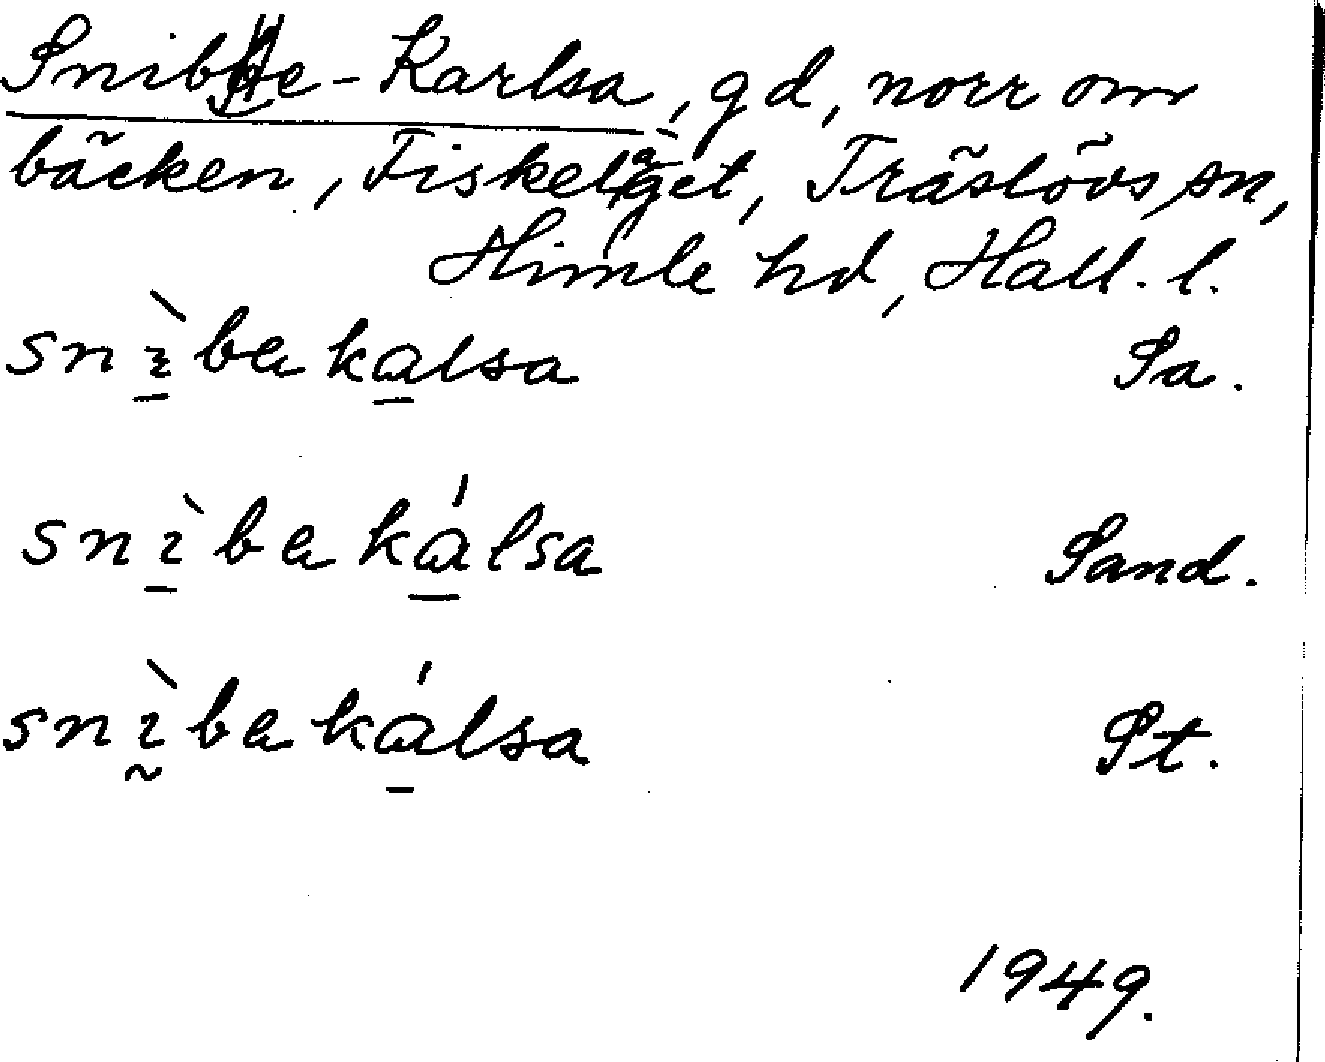 Snibbe-Karlsa, gd, norr om
bäcken, Fiskeläget, Träslövs sn,
Himle hd, Hall. l.
snìbakalsa Sa.
snìbakálsa Sand.
snìbakálsa St.
1949.